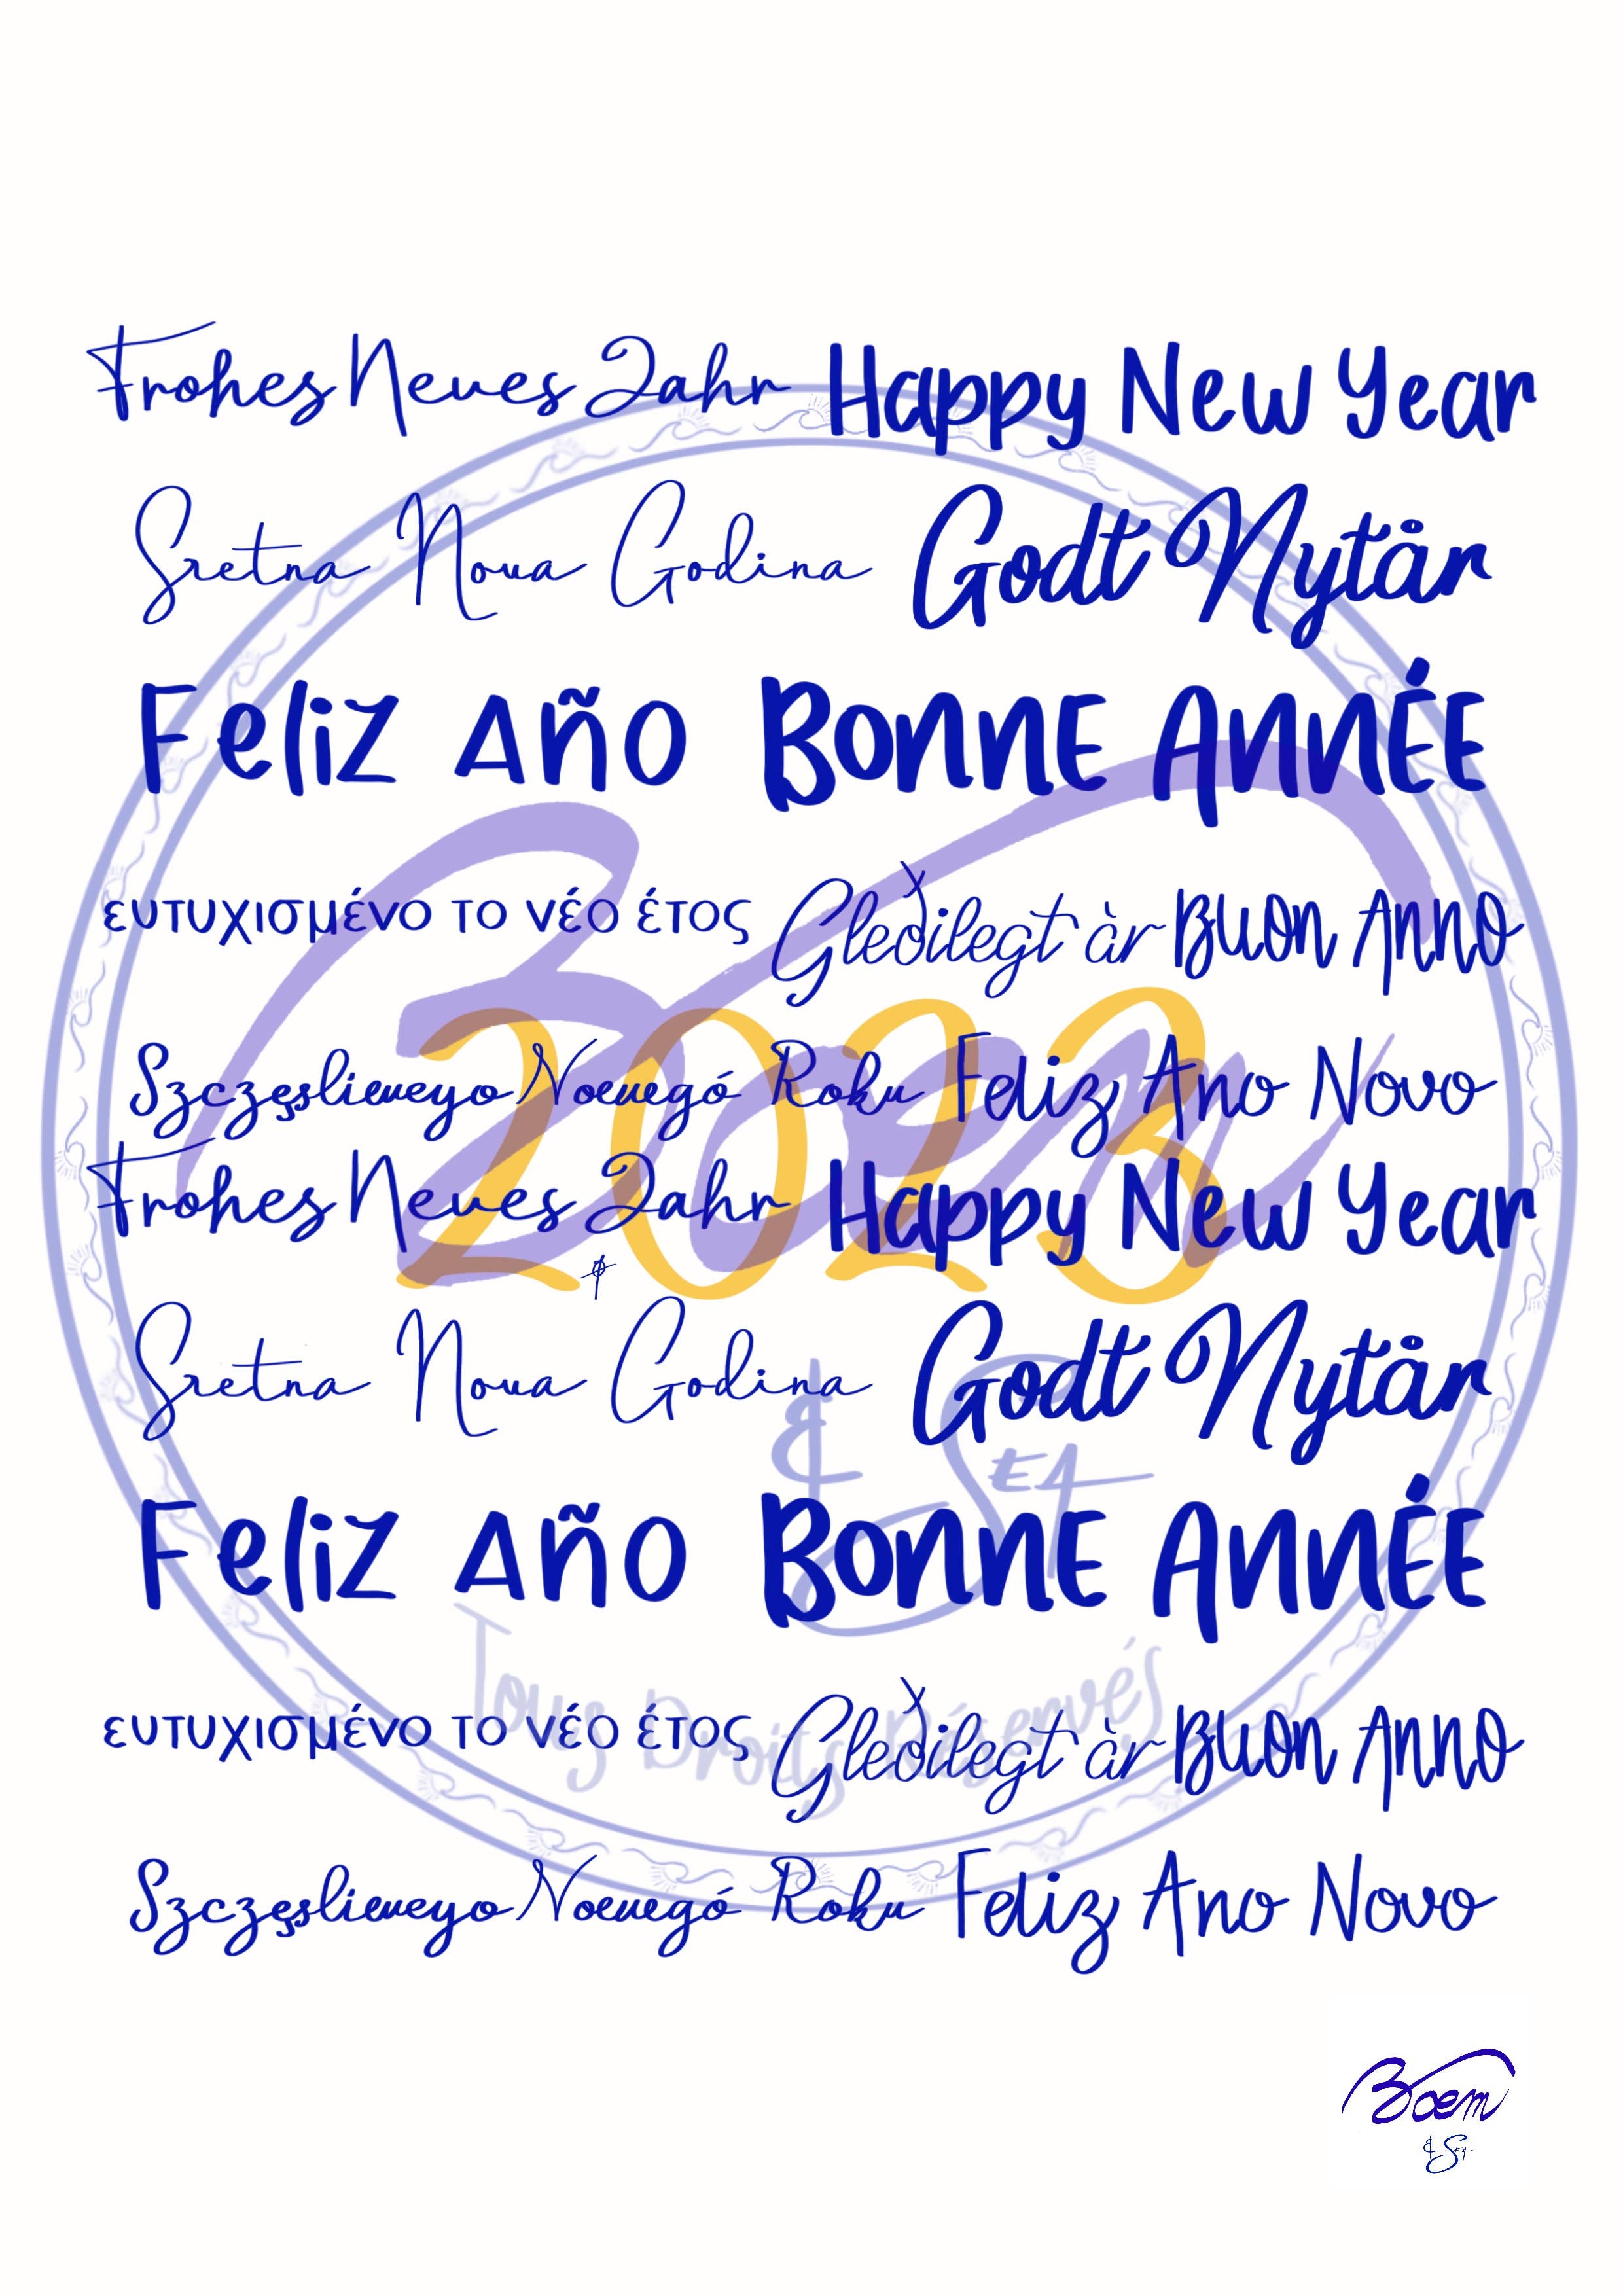 Frohes Neues Jahr Happy New Year
Sretna Nova Godina Godt Nytår
Feliz Año Bonne Année
ευτυχισμένο το νέο έτος Gleðilegt àr Buon Anno
Szczęslieweyo Noewegó Roku Feliz Ano Novo
2023
Frohes Neues Jahr Happy New Year
Sretna Nova Godina Godt Nytår
Feliz Año Bonne Année
ευτυχισμένο το νέο έτος Gleðilegt àr Buon Anno
Szczęslieweyo Noewegó Roku Feliz Ano Novo
Boem
& Sea
Tous Droits Réservés
Boem
& Sea